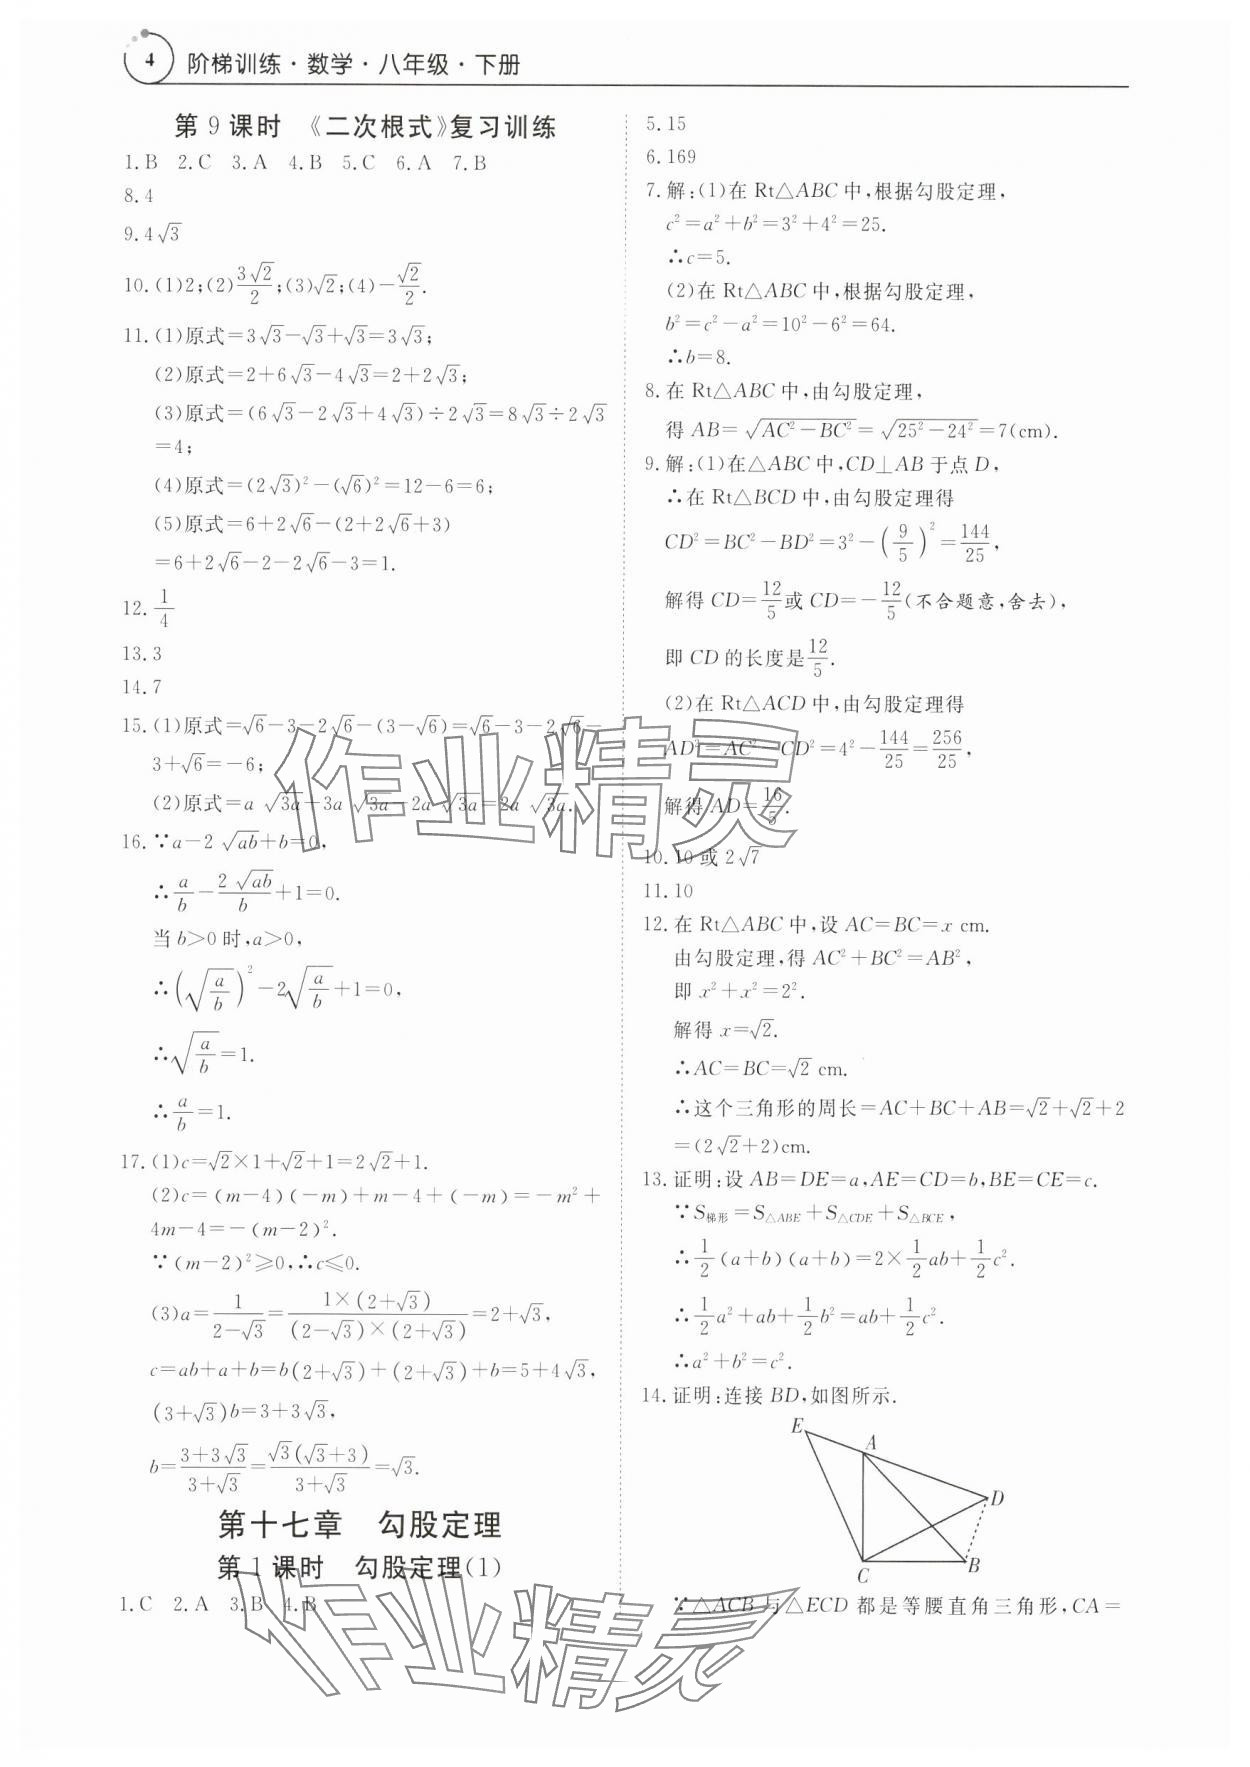 4 阶梯训练·数学·八年级·下册
第 9 课时 《二次根式》复习训练
1.B 2.C 3.A 4.B 5.C 6.A 7.B
8.4
9.4√3
10.(1)2;(2)3√2/2;(3)√2;(4)-√2/2.
11.(1)原式=3√3-√3+√3=3√3;
(2)原式=2+6√3-4√3=2+2√3;
(3)原式=(6√3-2√3+4√3)÷2√3=8√3÷2√3
=4;
(4)原式=(2√3)²-(√6)²=12-6=6;
(5)原式=6+2√6-(2+2√6+3)
=6+2√6-2-2√6-3=1.
12.1/4
13.3
14.7
15.(1)原式=√6-3-2√6-(3-√6)=√6-3-2√6-
3+√6=-6;
(2)原式=a√3a+3a√3a-2a√3a=2a√3a.
16.∵a-2√ab+b=0,
∴a/b-2√ab/b+1=0.
当 b>0 时,a>0,
∴(√(a/b))²-2√(a/b)+1=0,
∴√(a/b)=1.
∴a/b=1.
17.(1)c=√2×1+√2+1=2√2+1.
(2)c=(m-4)(-m)+m-4+(-m)=-m²+
4m-4=-(m-2)².
∵(m-2)²≥0,∴c≤0.
(3)a=1/(2-√3)=1×(2+√3)/((2-√3)×(2+√3))=2+√3,
c=ab+a+b=b(2+√3)+(2+√3)+b=5+4√3,
(3+√3)b=3+3√3,
b=(3+3√3)/(3+√3)=√3(√3+3)/(3+√3)=√3.
第十七章 勾股定理
第 1 课时 勾股定理(1)
1.C 2.A 3.B 4.B
5.15
6.169
7.解:(1)在 Rt△ABC 中,根据勾股定理,
c²=a²+b²=3²+4²=25.
∴c=5.
(2)在 Rt△ABC 中,根据勾股定理,
b²=c²-a²=10²-6²=64.
∴b=8.
8.在 Rt△ABC 中,由勾股定理,
得 AB=√(AC²-BC²)=√(25²-24²)=7(cm).
9.解:(1)在△ABC 中,CD⊥AB 于点 D,
∴在 Rt△BCD 中,由勾股定理得
CD²=BC²-BD²=3²-(9/5)²=144/25,
解得 CD=12/5或 CD=-12/5(不合题意,舍去),
即 CD 的长度是12/5.
(2)在 Rt△ACD 中,由勾股定理得
AD²=AC²-CD²=4²-144/25=256/25,
解得 AD=16/5.
10.10 或 2√7
11.10
12.在 Rt△ABC 中,设 AC=BC=x cm.
由勾股定理,得 AC²+BC²=AB²,
即 x²+x²=2².
解得 x=√2.
∴AC=BC=√2 cm.
∴这个三角形的周长=AC+BC+AB=√2+√2+2
=(2√2+2)cm.
13.证明:设 AB=DE=a,AE=CD=b,BE=CE=c.
∵S梯形=S△ABE+S△CDE+S△BCE,
∴1/2(a+b)(a+b)=2×1/2ab+1/2c².
∴1/2a²+ab+1/2b²=ab+1/2c².
∴a²+b²=c².
14.证明:连接 BD,如图所示.
E
A
D
B
C
∵△ACB 与△ECD 都是等腰直角三角形,CA=
作业精灵
作业精灵